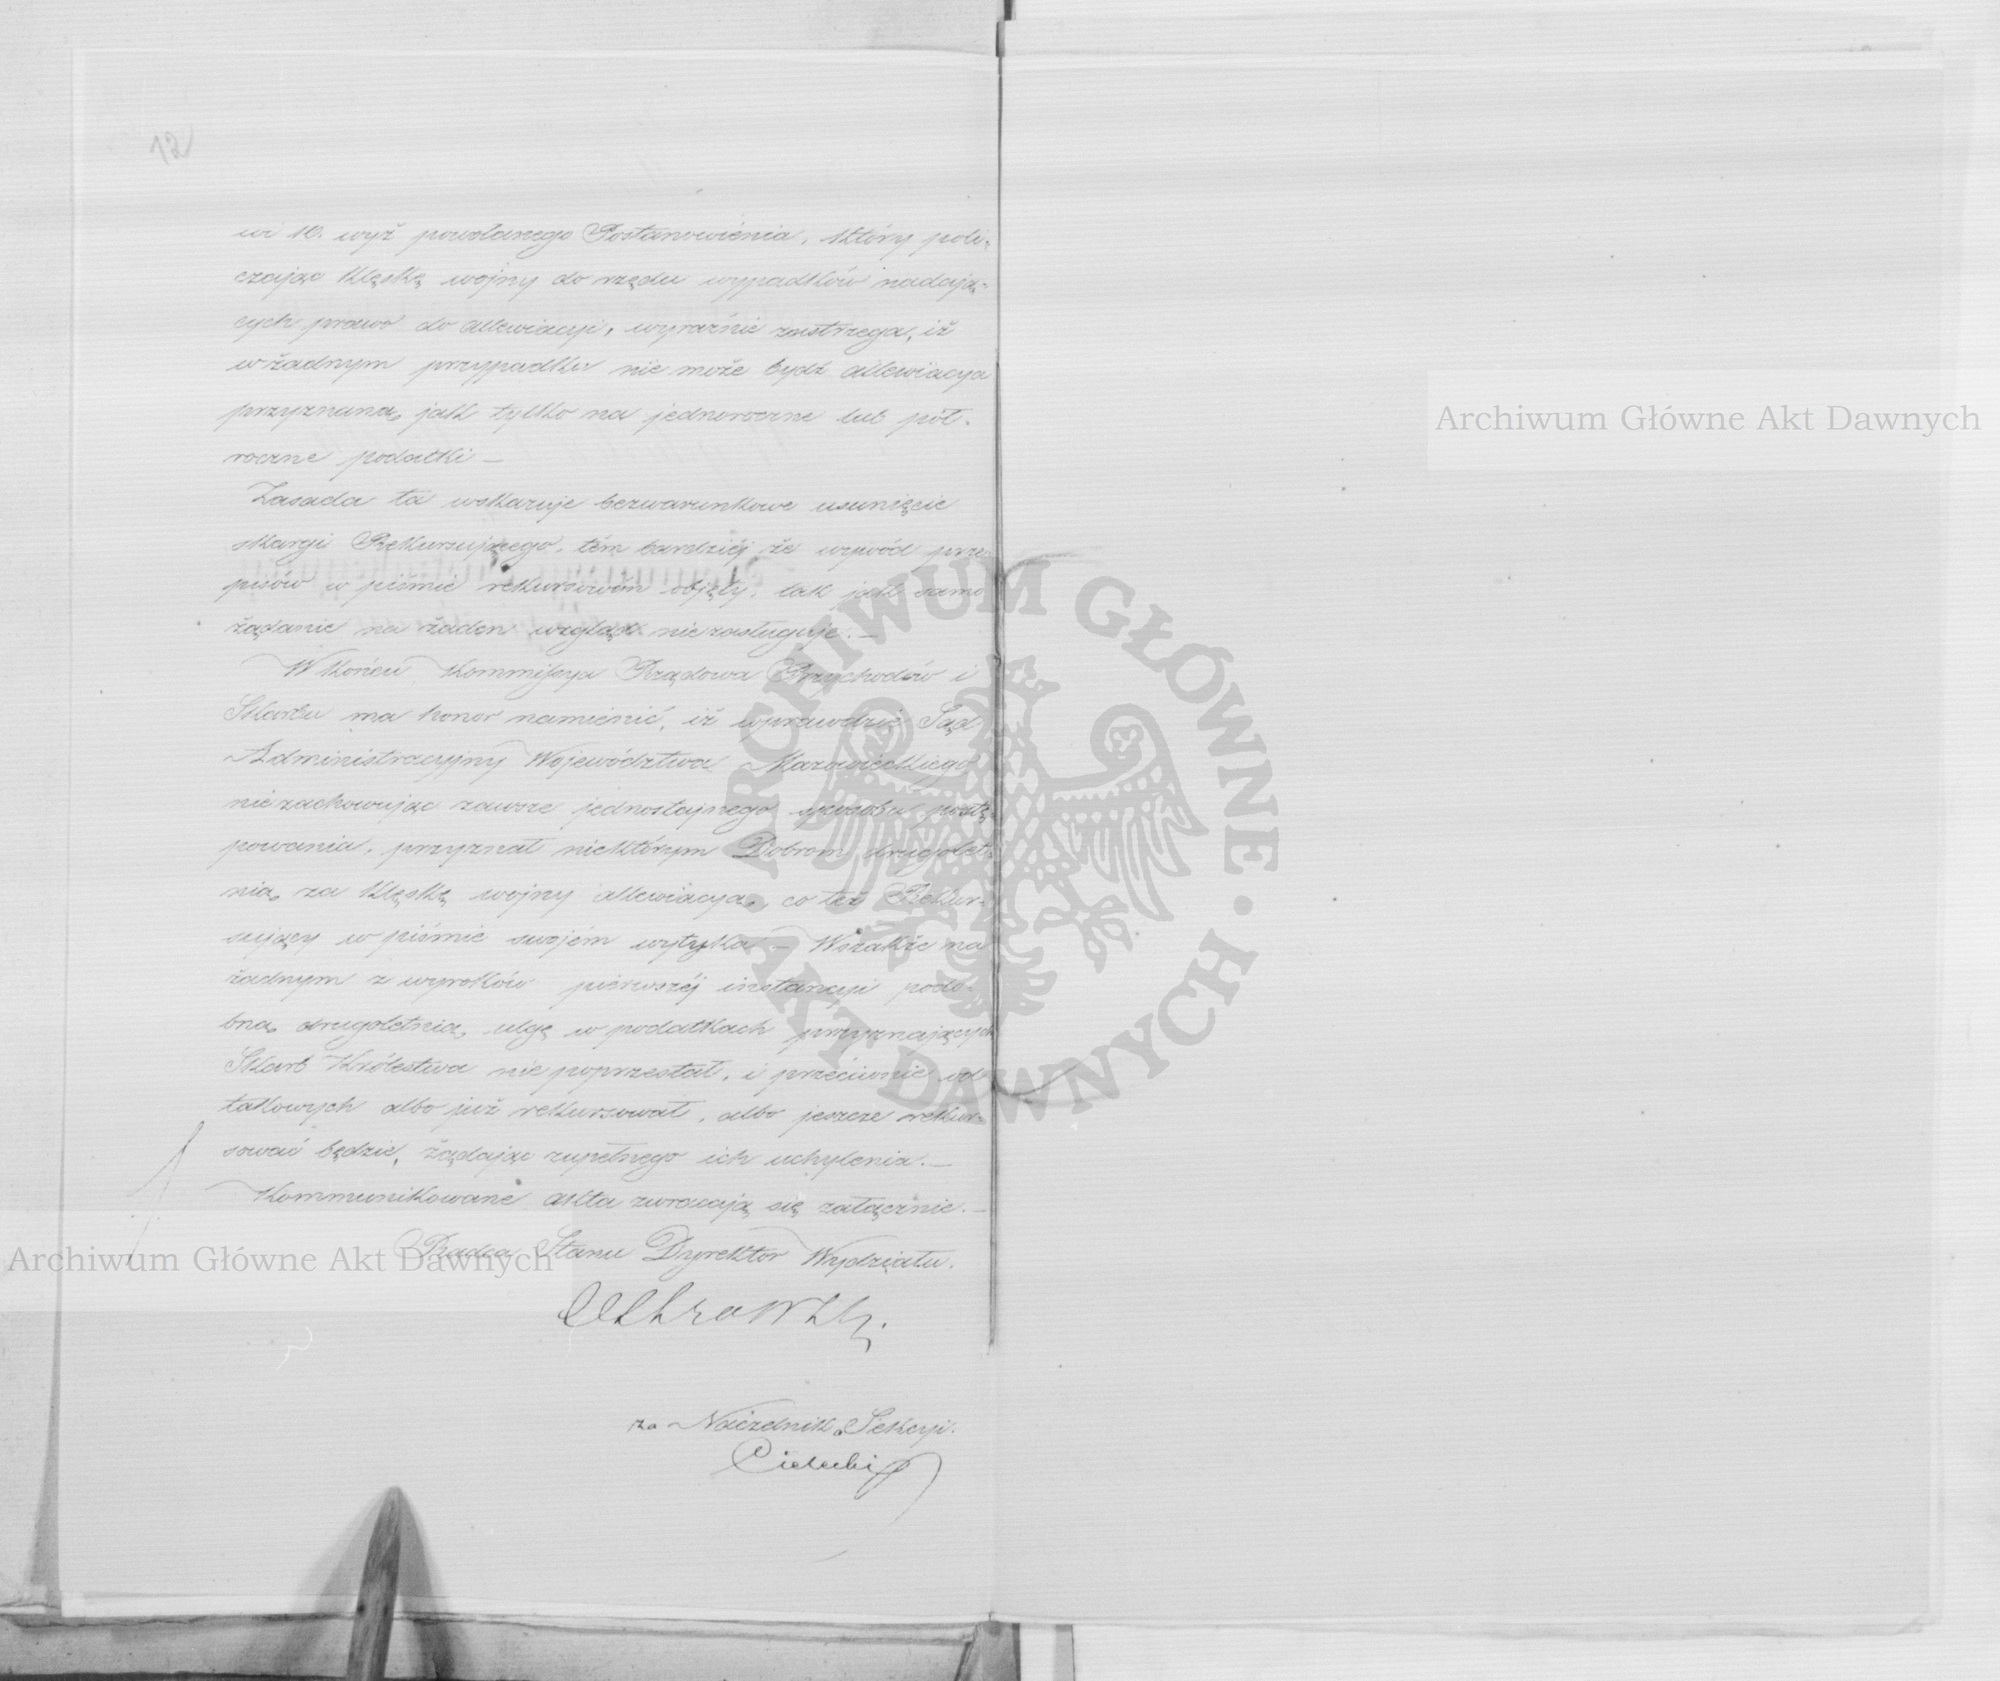 12
wi 10. wyż powołanego Postanowienia, który poli-
czając klęskę wojny do rzędu wypadków nadają-
cych prawo do allewiacyi, wyraźnie zastrzega, iż
w żadnym przypadku nie może bydź allewiacya
przyznaną, jak tylko na jednoroczne lub pół-
roczne podatki —
Zasada ta wskazuje bezwarunkowe usunięcie
skargi Rekursującego, tém bardziéj że wywód prze-
pisów w piśmie rekursowém objęty, tak jak samo
żądanie na żaden wzgląd nie zasługuje. —
W końcu Kommissya Rządowa Przychodów i
Skarbu ma honor namienić, iż wprawdzie Sąd
Administracyjny Województwa Mazowieckiego
niezachowując zawsze jednostajnego sposobu postę-
powania, przyznał niektórym Dobrom drugolet-
nią za klęskę wojny allewiacyą, co też Rekur-
sujący w piśmie swojém wytyka — Wszakże na
żadnym z wyroków pierwszéj instancyi podo-
bną drugoletnią ulgę w podatkach przyznających
Skarb Królestwa nie poprzestał, i przeciwnie od
takowych albo już rekursował, albo jeszcze rekur-
sować będzie, żądając zupełnego ich uchylenia. —
Kommunikowane akta zwracają się załącznie. —
Radca Stanu Dyrektor Wydziału.
za Naczelnik Sekcyi.
Archiwum Główne Akt Dawnych
Archiwum Główne Akt Dawnych
ARCHIWUM GŁÓWNE
AKT DAWNYCH